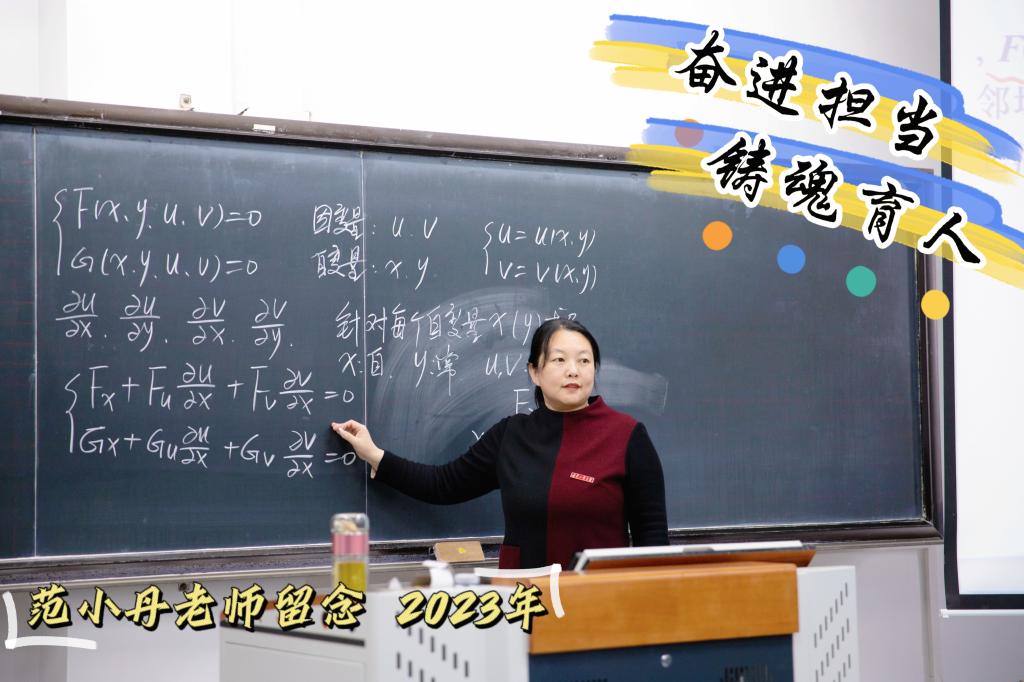 奋进担当
铸魂育人
, F
邻域
{ F(x, y, u, v)=0
G(x, y, u, v)=0
因变量: u. v
自变量: x. y.
{ u = u(x, y)
v = v(x, y)
∂u/∂x. ∂u/∂y. ∂v/∂x. ∂v/∂y.
针对每个自变量 x (y)
x:自. y:常 u,v:
{ Fx + Fu ∂u/∂x + Fv ∂v/∂x = 0
Gx + Gu ∂u/∂x + Gv ∂v/∂x = 0
范小丹老师留念 2023年